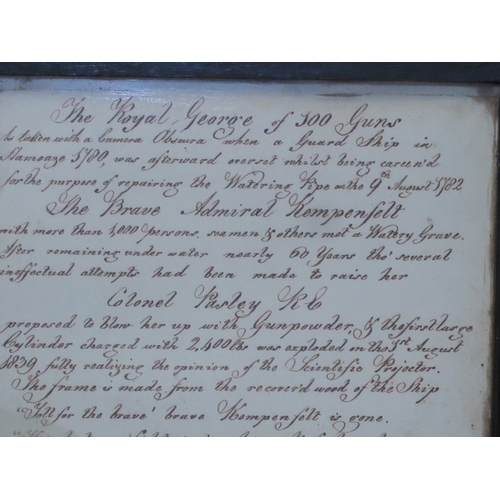 The Royal George of 100 Guns
As taken with a Camera Obscura when a Guard Ship in
Hamoaze 1780, was afterward overset whilst being careen'd
for the purpose of repairing the Watering Pipe on the 9th August 1782
The Brave Admiral Kempenfelt
with more than 1,000 persons, seamen & others met a Watery Grave.
After remaining under water nearly 60 Years tho' several
ineffectual attempts had been made to raise her
Colonel Pasley R E
proposed to blow her up with Gunpowder, & the first large
Cylinder charged with 2,400lbs was exploded on the 31st August
1839 fully realizing the opinion of the Scientific Projector.
The frame is made from the recover'd wood of the Ship
"Toll for the brave' brave Kempenfelt is gone.